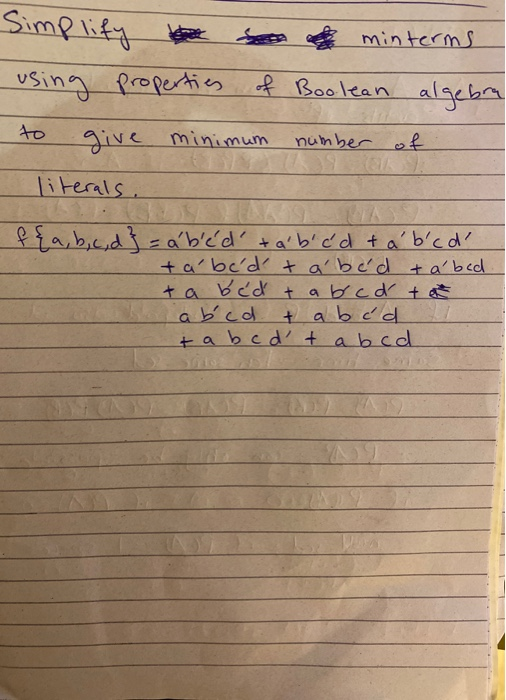 Simplify minterms
using properties of Boolean algebra
to give minimum number of
literals.
f{a,b,c,d} = a'b'c'd' + a'b'c'd + a'b'cd'
+ a'bc'd' + a'bc'd + a'bcd
+ a b'c'd + a b'c d' +
a b'c d + a b c'd
+ a b c d' + a b c d